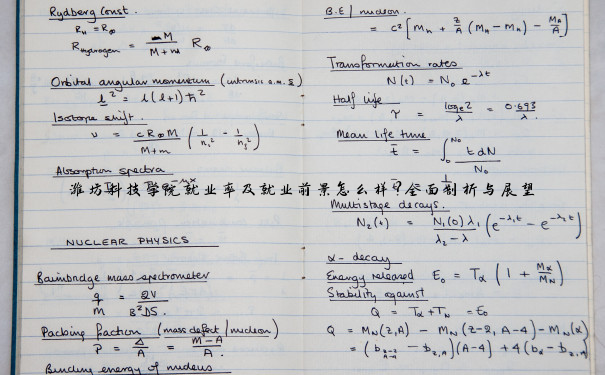 Rydberg Const.
R_H = R_∞
R_Hydrogen = M / (M + m) R_∞
Orbital angular momentum (intrinsic a.m. s)
l² = l(l+1)ħ²
Isotope shift.
ν = cR_∞M / (M+m) (1/n₁² - 1/n₂²)
Absorption spectra
潍坊科技学院就业率及就业前景怎么样？全面剖析与展望
NUCLEAR PHYSICS
Bainbridge mass spectrometer
q/m = 2V / B²DS.
Packing fraction (mass defect / nucleon)
P = Δ/A = (M-A)/A.
Binding energy of nucleus
B.E / nucleon.
= c² [M_n + Z/A (M_H - M_n) - M_A/A]
Transformation rates
N(t) = N₀ e^(-λt)
Half life
τ = log_e 2 / λ = 0.693 / λ.
Mean life time
t̄ = ∫₀^N₀ t dN / N₀
Multistage decays.
N₂(t) = N₁(0) λ₁ / (λ₂ - λ) (e^(-λ₁t) - e^(-λ₂t))
α - decay
Energy released E₀ = T_α (1 + M_α/M_N)
Stability against
Q = T_α + T_N = E₀
Q = M_N(Z,A) - M_N(Z-2, A-4) - M_N(α)
= (b_(Z-2, A-4) - b_(Z,A))(A-4) + 4(b_α - b_(Z,A)